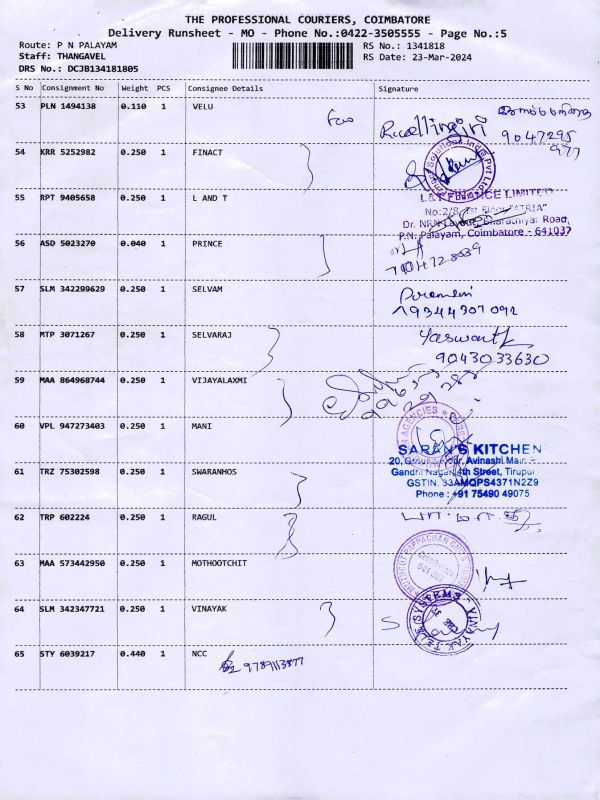 THE PROFESSIONAL COURIERS, COIMBATORE
Delivery Runsheet - MO - Phone No.:0422-3505555 - Page No.:5
Route: P N PALAYAM
Staff: THANGAVEL
DRS No.: DCJB134181805
RS No.: 1341818
RS Date: 23-Mar-2024
S No Consignment No Weight PCS Consignee Details Signature
53 PLN 1494138 0.110 1 VELU
9047295
977
54 KRR 5252982 0.250 1 FINACT
55 RPT 9405658 0.250 1 L AND T
L&T FINANCE LIMITED
No:2/8, 1st Floor "ATRIA"
Dr. NRN Layout, Bharathiyar Road,
P.N. Palayam, Coimbatore - 641037
56 ASD 5023270 0.040 1 PRINCE
57 SLM 342299629 0.250 1 SELVAM
9344307092
58 MTP 3071267 0.250 1 SELVARAJ
Yaswanth
9043033630
59 MAA 864968744 0.250 1 VIJAYALAXMI
60 VPL 947273403 0.250 1 MANI
AGENCIES
SARAN'S KITCHEN
20, Ground Floor, Avinashi Main
Gandhi Nagar, 4th Street, Tirupur
GSTIN. 33AMQPS4371N2Z9
Phone : +91 75490 49075
61 TRZ 75302598 0.250 1 SWARANHOS
62 TRP 602224 0.250 1 RAGUL
63 MAA 573442950 0.250 1 MOTHOOTCHIT
64 SLM 342347721 0.250 1 VINAYAK
VINAYAK TELE SYSTEMS
65 STY 6039217 0.440 1 NCC
9789113877